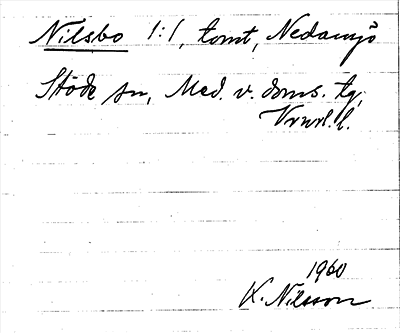 Nilsbo 1:1, tomt, Nedansjö
Stöde sn, Med. v. doms. tg,
Vnrl. l.
1960
K. Nilsson